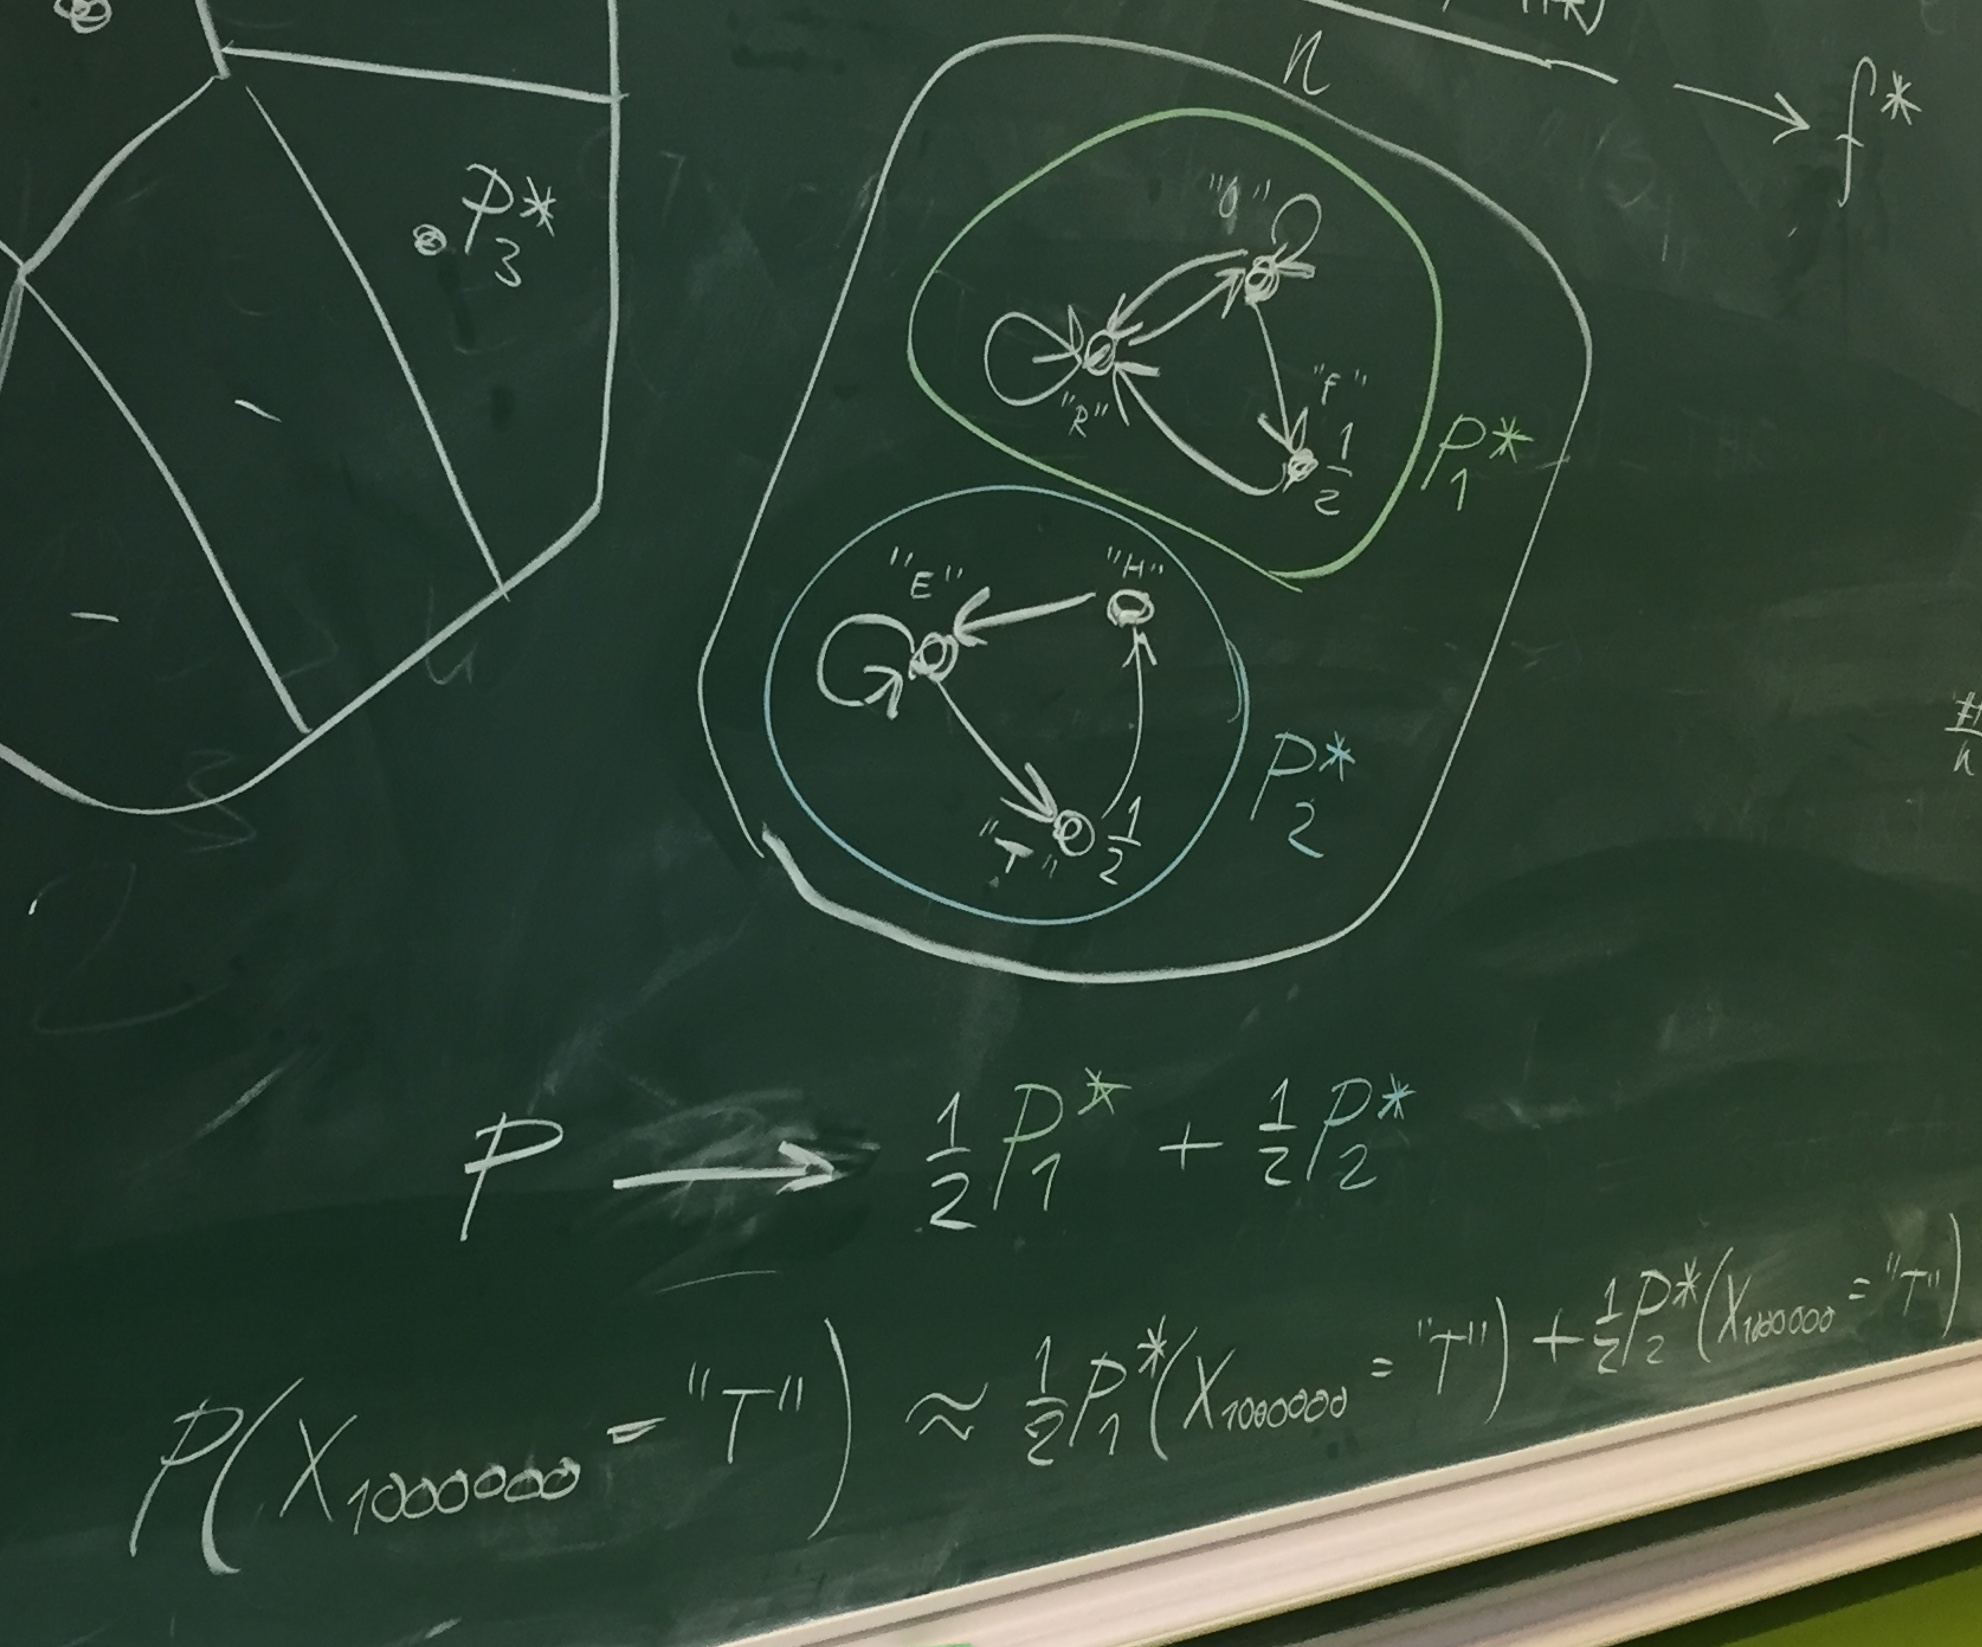 n
→ f*
P₃*
"O"
"R"
"F"
1/2
P₁*
"E"
"H"
"T" 1/2
P₂*
P → 1/2 P₁* + 1/2 P₂*
P(X₁₀₀₀₀₀₀ = "T") ≈ 1/2 P₁*(X₁₀₀₀₀₀₀ = "T") + 1/2 P₂*(X₁₀₀₀₀₀₀ = "T")